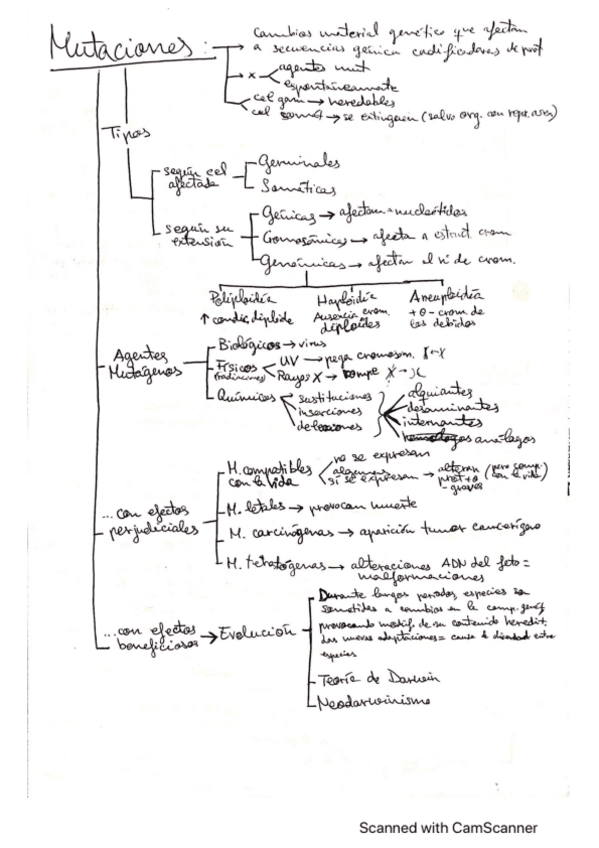 Mutaciones :
Cambios material genético que afectan
a secuencias génica codificadoras de prot
x
agentes mut
espontáneamente
cel gam → heredables
cel somát → se extinguen (salvo org. con repr. asex)
Tipos
según cel
afectada
Germinales
Somáticas
según su
extensión
Génicas → afectan a nucleótidos
Cromosómicas → afecta a estruct crom
Genómicas → afectan el nº de crom.
Poliploidía
↑ condic. diploide
Haploidía
Ausencia crom.
diploides
Aneuploidía
+ o - crom de
los debidos
Agentes
Mutágenos
Biológicos → virus
Físicos
(radiaciones)
UV → pega cromosom.
Rayos X → rompe
Químicos
sustituciones
inserciones
delecciones
alquiantes
desaminantes
internantes
análogos
...con efectos
perjudiciales
M. compatibles
con la vida
no se expresan
algunas
sí se expresan → alteran
prot + o
- graves
(pero comp.
con la vida)
M. letales → provocan muerte
M. carcinógenas → aparición tumor cancerígeno
M. tetratógenas → alteraciones ADN del feto =
malformaciones
...con efectos
beneficiosos → Evolución
Durante largos periodos, especies son
sometidas a cambios en la comp. genét
provocando modif. de su contenido heredit.
Las nuevas adaptaciones = causa de diversidad entre
especies
Teoría de Darwin
Neodarwinismo
Scanned with CamScanner